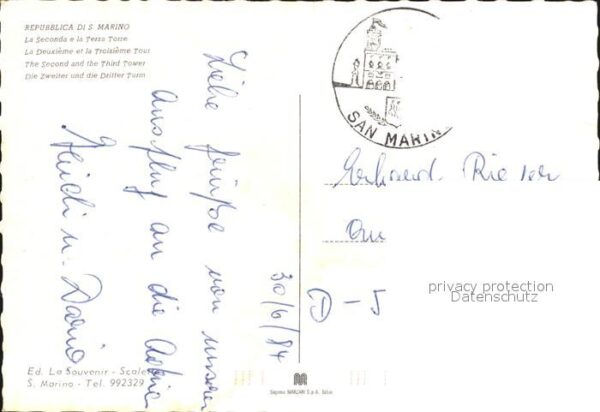 REPUBBLICA DI S. MARINO
La Seconda e la Terza Torre
La Deuxième et la Troisième Tour
The Second and the Third Tower
Die Zweiter und die Dritter Turm
Liebe Grüße von unserem
Ausflug an die Adria
Heidi u. David
30/6/84
SAN MARIN
Erhard Rieser
D - 5
privacy protection
Datenschutz
Ed. La Souvenir - Scalet
S. Marino - Tel. 992329